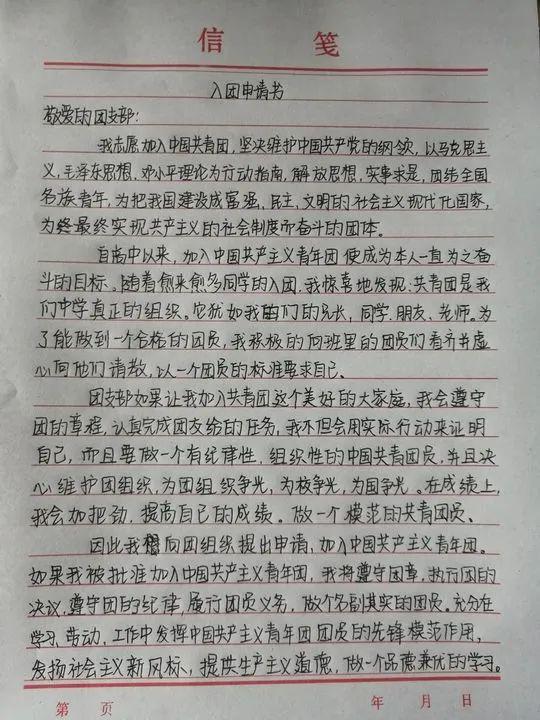 信 笺
入团申请书
敬爱的团支部:
我志愿加入中国共青团,坚决维护中国共产党的纲领,以马克思主
义,毛泽东思想,邓小平理论为行动指南,解放思想,实事求是,团结全国
各族青年,为把我国建设成富强、民主、文明的社会主义现代化国家,
为终最终实现共产主义的社会制度而奋斗的团体。
自高中以来,加入中国共产主义青年团便成为本人一直为之奋
斗的目标。随着愈来愈多同学的入团,我惊喜地发现:共青团是我
们中学真正的组织。它犹如我们的兄长,同学、朋友、老师。为
了能做到一个合格的团员,我积极的向班里的团员们看齐并虚
心向他们请教,以一个团员的标准要求自己。
团支部如果让我加入共青团这个美好的大家庭,我会遵守
团的章程,认真完成团支给的任务,我不但会用实际行动来证明
自己,而且要做一个有纪律性,组织性的中国共青团员,并且决
心维护团组织,为团组织争光,为校争光,为国争光。在成绩上,
我会加把劲,提高自己的成绩。做一个模范的共青团员。
因此我想向团组织提出申请,加入中国共产主义青年团。
如果我被批准加入中国共产主义青年团,我将遵守团章,执行团的
决议,遵守团的纪律,履行团员义务,做个名副其实的团员。充分在
学习、劳动、工作中发挥中国共产主义青年团团员的先锋模范作用,
发扬社会主义新风标,提供生产主义道德,做一个品德兼优的学习。
第 页 年 月 日